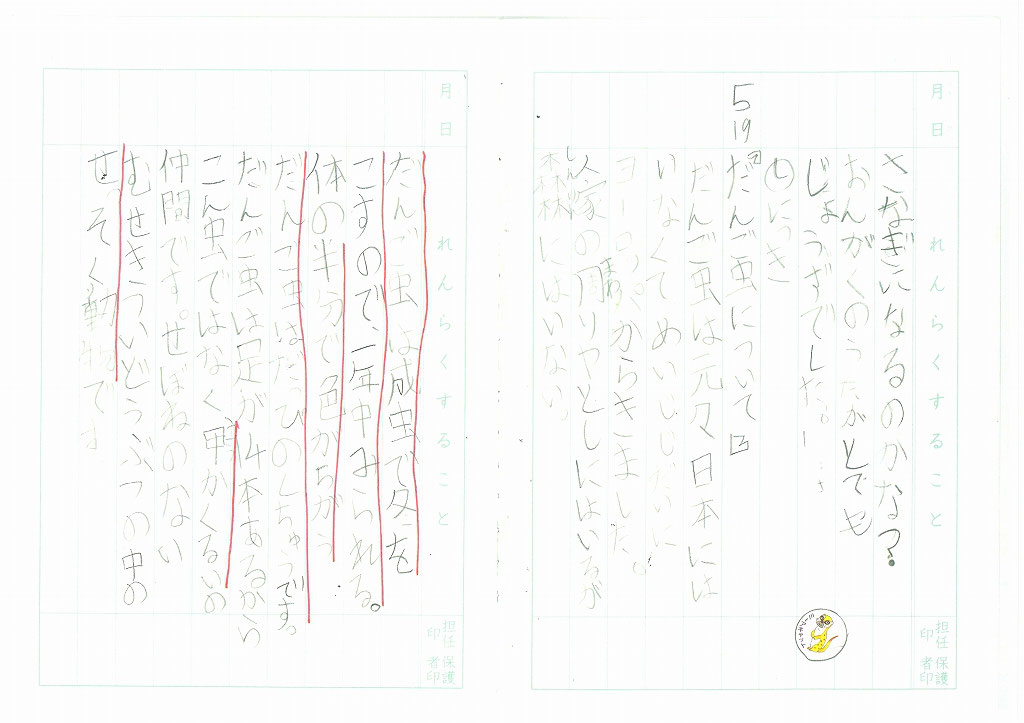 月日 れんらくすること
さなぎになるのかな?
おんがくのうたがとても
じょうずでした。
し にっき
5 19 だんご虫について
だんご虫は元々日本には
いなくてめいじじだいに
ヨーロッパからきました。
人家の周りやとしにはいるが
しんりん 森林にはいない。
担任印 保護者印
月日 れんらくすること
だんご虫は成虫で冬を
こすので、一年中みられる。
体の半分で色がちがう
だんご虫はだっぴのとちゅうです。
だんご虫は足が14本あるから
こん虫ではなく、甲かくるいの
仲間です。せぼねのない
むせきついどうぶつの中の
せっそく動物です
担任印 保護者印